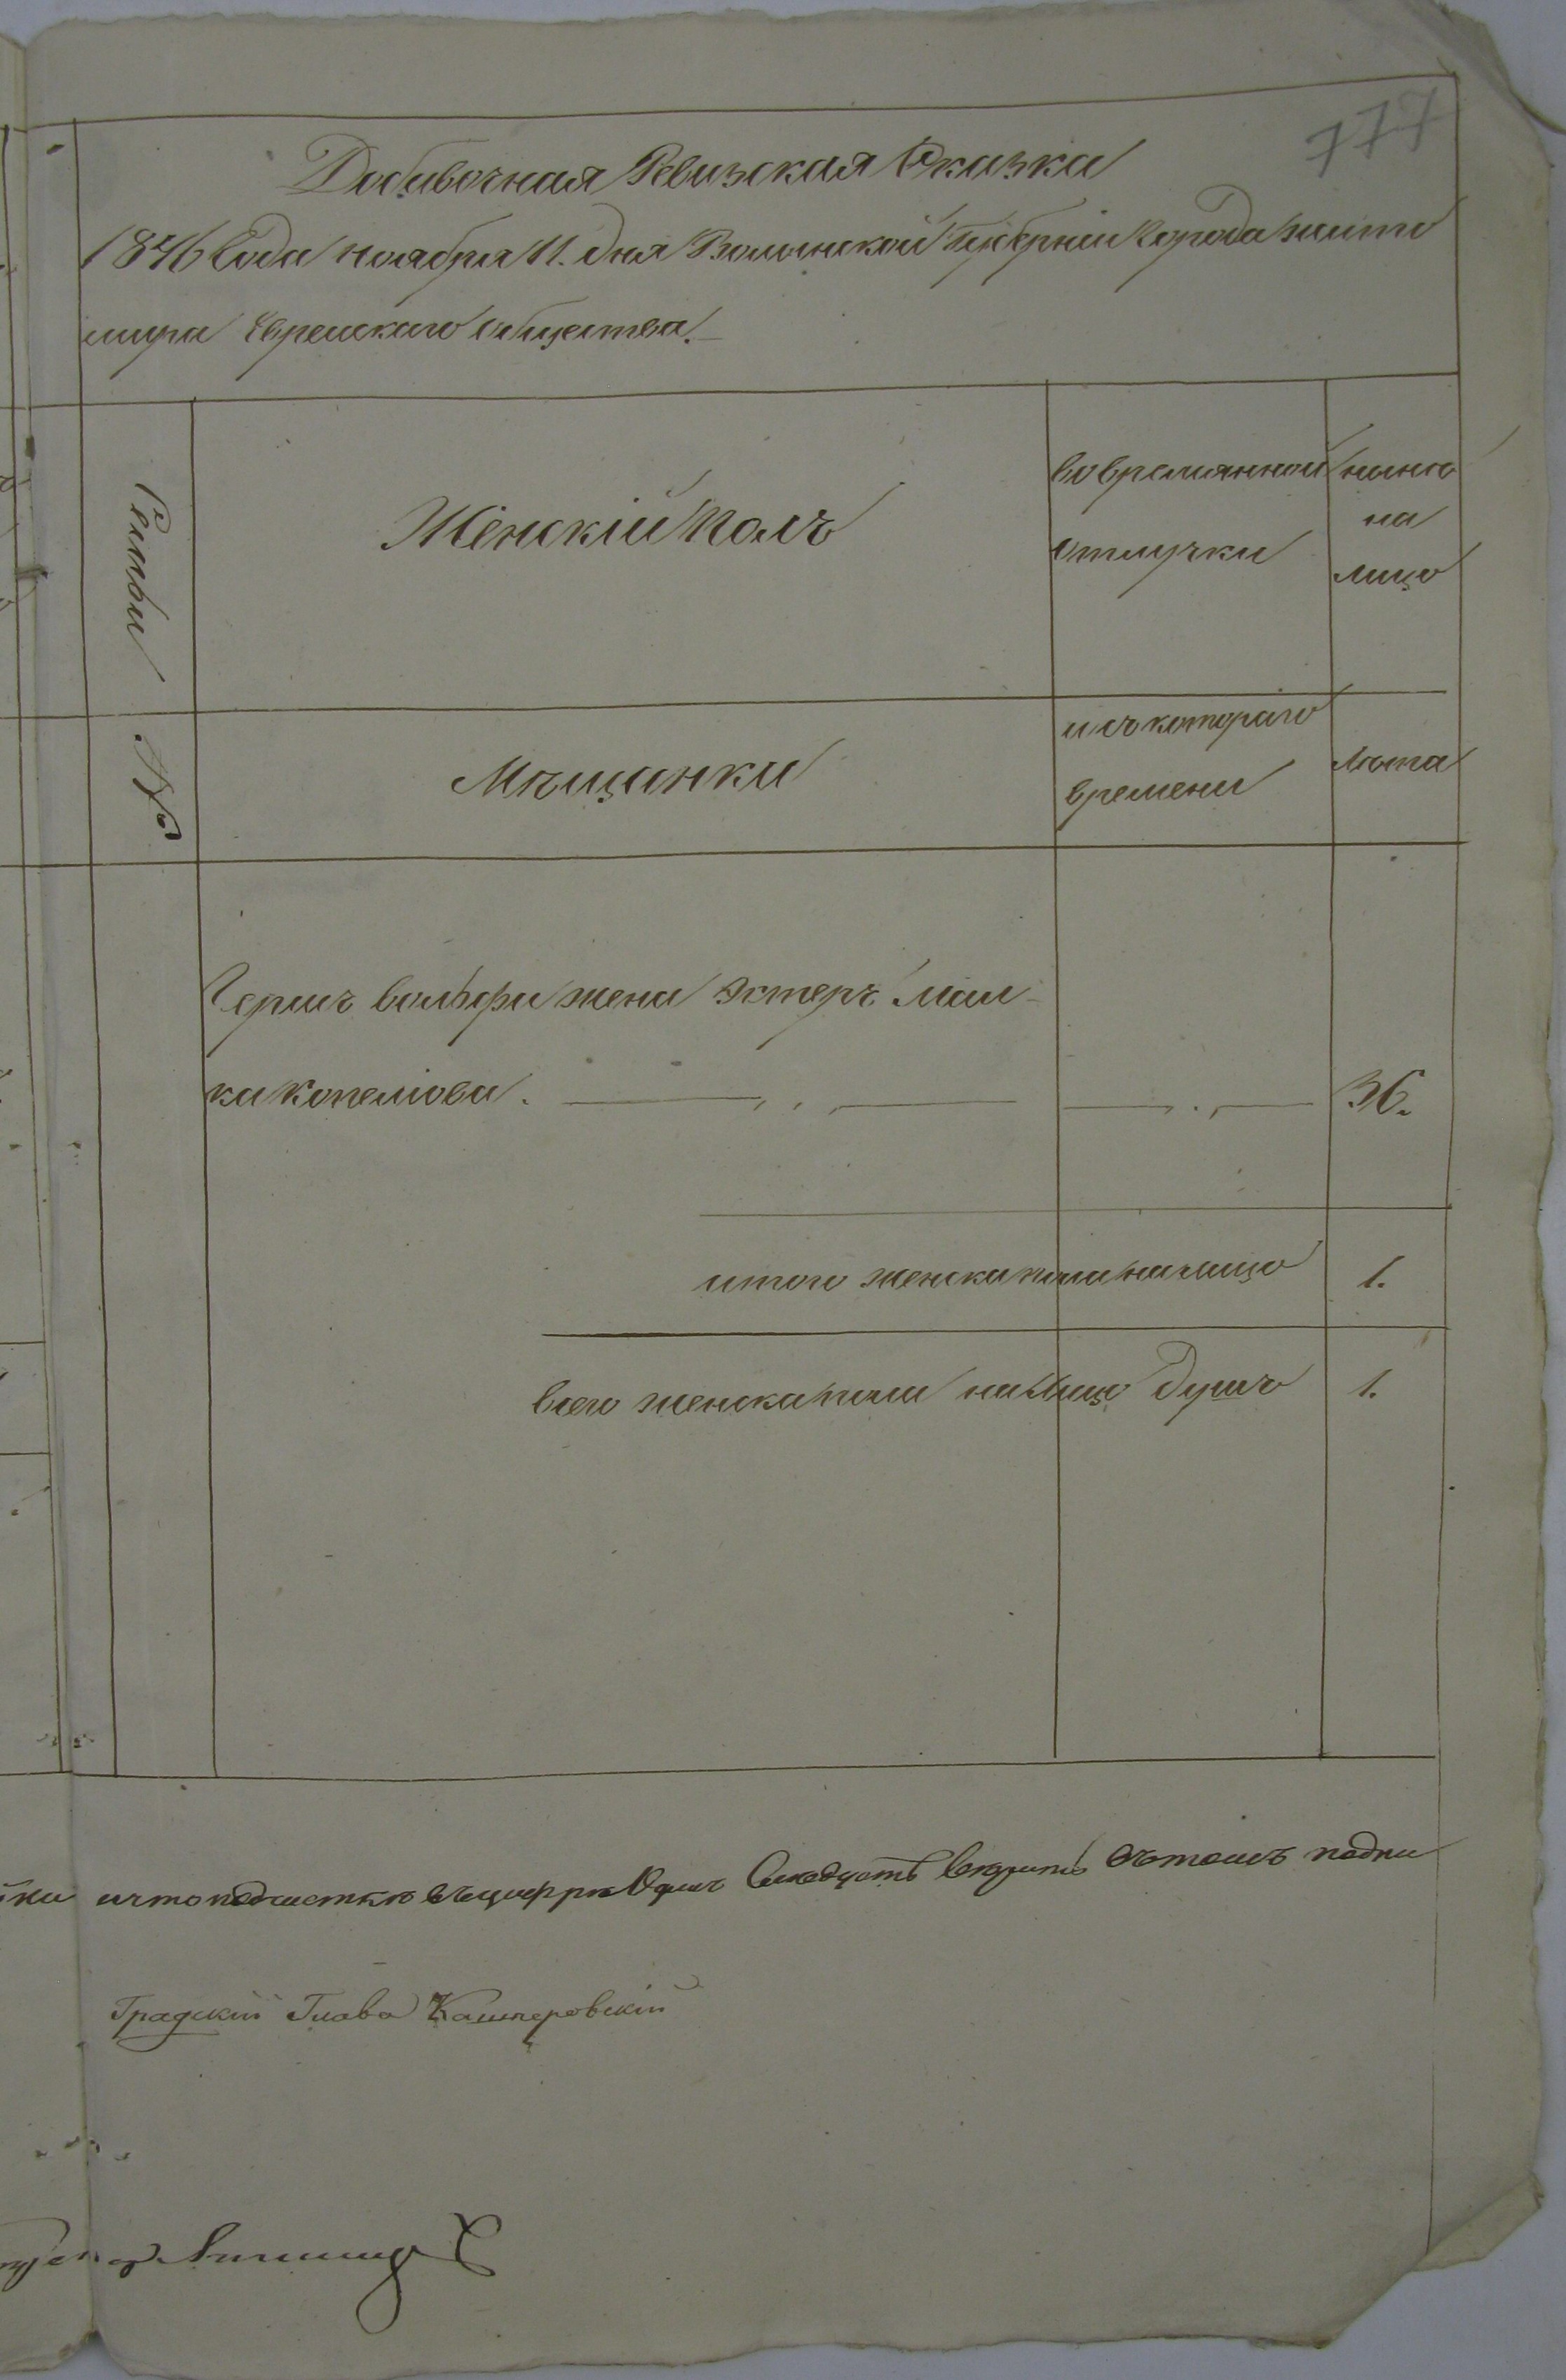 777
Добавочная Ревизская Сказка
1846 Года ноября 11. дня Волынской Губерніи Города Жито
мира Еврейскаго общества.
Семьи
Женскій полъ
во временной
отлучки
ныне
на
лицо
№
Мѣщанки
и съ котораго
времени
Лѣта
Гершъ Вольфа жена Эстеръ Мал-
ка Копелюва. 36.
итого женска пола на лицо 1.
всего женска пола на лицо душъ 1.
ки и что подчисткѣ въ цифрѣ Следуетъ верить въ томъ подпи
Градскій Глава Кашперовскій